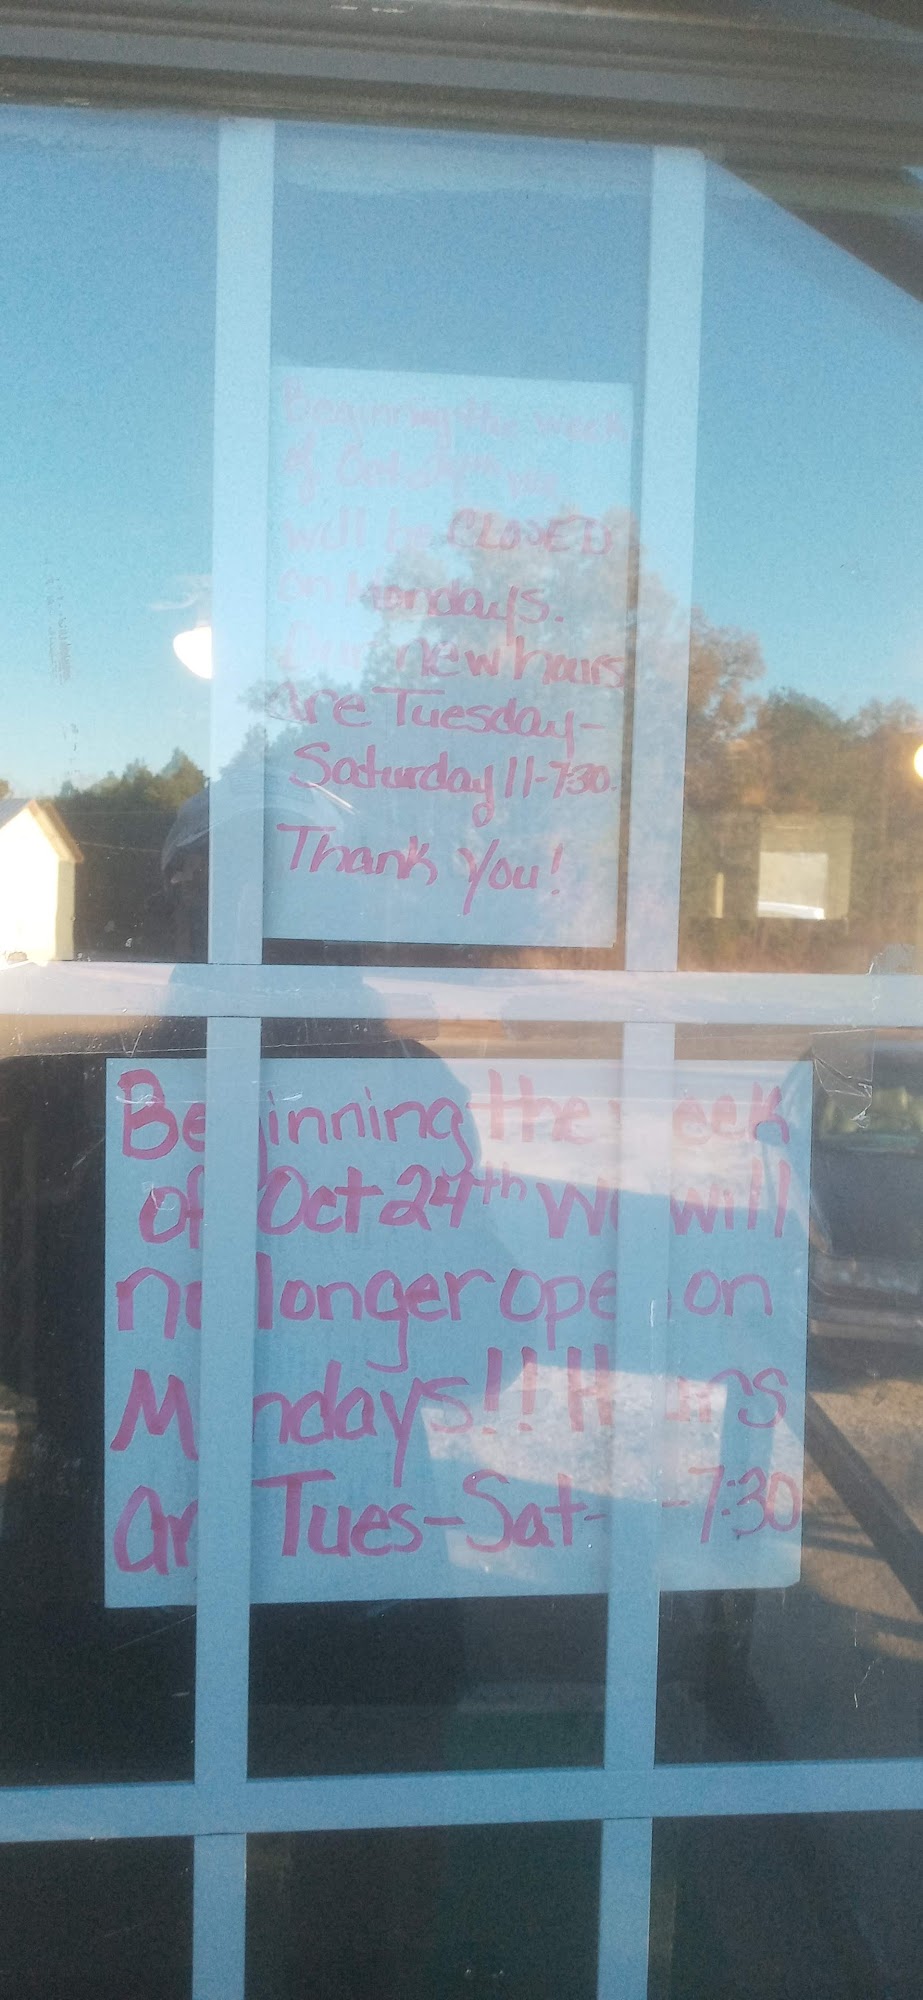 Beginning the week
of Oct 24th we
will be CLOSED
on Mondays.
Our new hours
are Tuesday-
Saturday 11-7:30.
Thank You!
Beginning the week
of Oct 24th We will
no longer open on
Mondays!! Hours
are Tues-Sat- -7:30